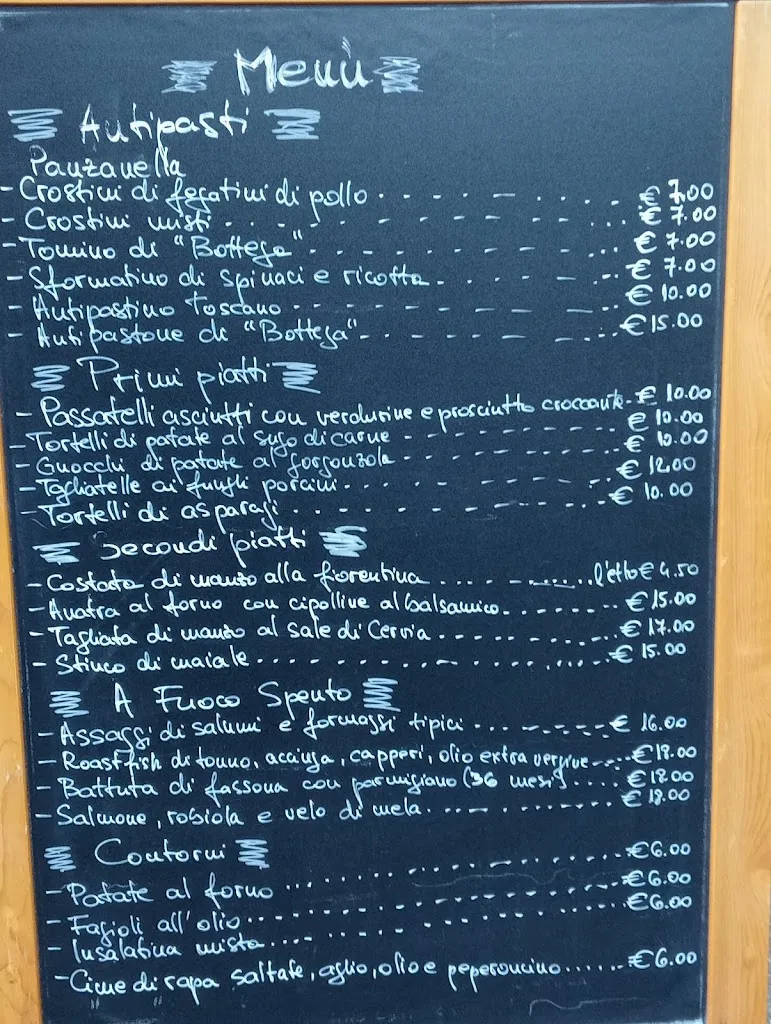 Menù
Antipasti
Panzanella
- Crostini di fegatini di pollo . . . . . . . . . € 7,00
- Crostini misti . . . . . . . . . € 7.00
- Tomino di "Bottega" . . . . . . . . . € 7.00
- Sformatino di spinaci e ricotta . . . . . . . . . € 7.00
- Antipastino toscano . . . . . . . . . € 10.00
- Antipastone di "Bottega" . . . . . . . . . € 15.00
Primi piatti
- Passatelli asciutti con verdurine e prosciutto croccante - € 10.00
- Tortelli di patate al sugo di carne . . . . . . . . . € 10.00
- Gnocchi di patate al gorgonzola . . . . . . . . . € 10.00
- Tagliatelle ai funghi porcini . . . . . . . . . € 12.00
- Tortelli di asparagi . . . . . . . . . € 10.00
Secondi piatti
- Costata di manzo alla fiorentina . . . . . . . . . l'etto € 4.50
- Anatra al forno con cipolline al balsamico . . . . . . . . . € 15.00
- Tagliata di manzo al sale di Cervia . . . . . . . . . € 17.00
- Stinco di maiale . . . . . . . . . € 15.00
A Fuoco Spento
- Assaggi di salumi e formaggi tipici . . . . . . . . . € 16.00
- Roastfish di tonno, acciuga, capperi, olio extra vergine . . . . € 18.00
- Battuta di fassona con parmigiano (36 mesi) . . . . € 18.00
- Salmone, robiola e velo di mela . . . . . . . . . € 18.00
Contorni
- Patate al forno . . . . . . . . . € 6.00
- Fagioli all'olio . . . . . . . . . € 6.00
- Insalatina mista . . . . . . . . . € 6.00
- Cime di rapa saltate, aglio, olio e peperoncino . . . . . . € 6.00